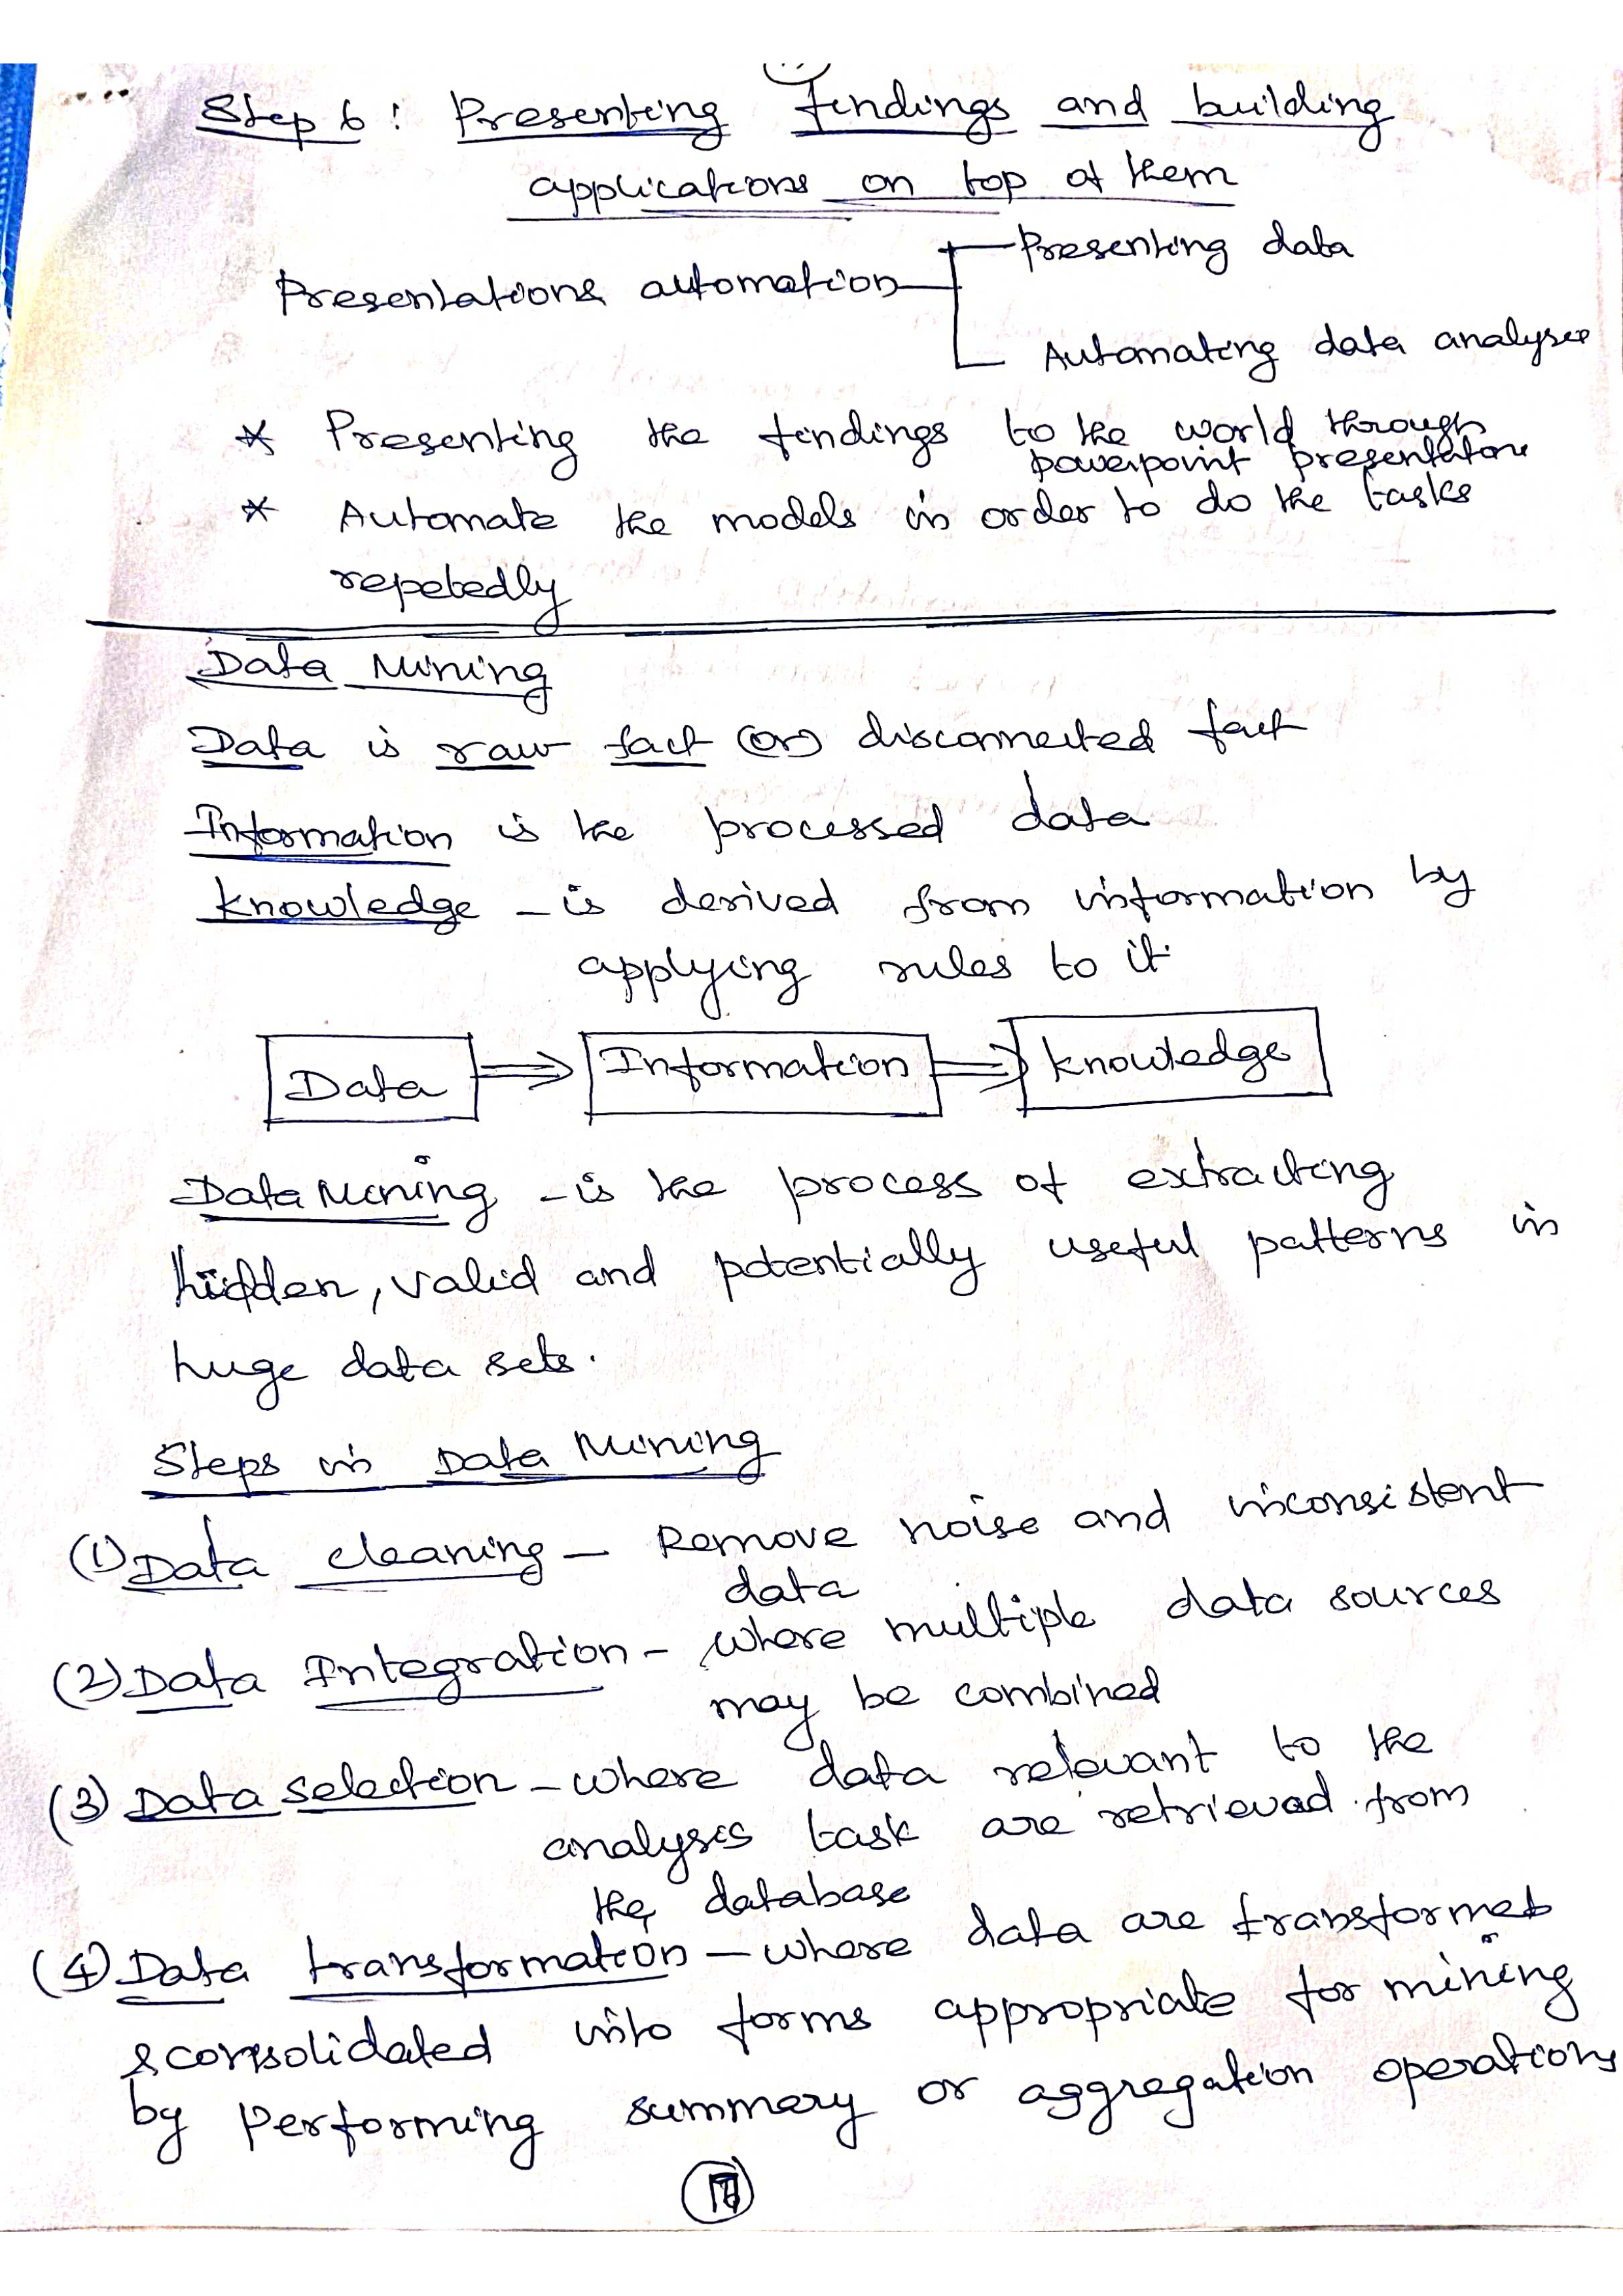 Step 6 : Presenting findings and building
applications on top of them
Presentations automation
Presenting data
Automating data analysis
* Presenting the findings to the world through
powerpoint presentations
* Automate the models in order to do the tasks
repetedly
Data Mining
Data is raw fact (or) disconnected fact
Information is the processed data
knowledge - is derived from information by
applying rules to it.
Data ⇒ Information ⇒ knowledge
Data Mining - is the process of extracting
hidden, valid and potentially useful patterns in
huge data sets.
Steps in Data Mining
(1) Data cleaning - Remove noise and inconsistent
data
(2) Data Integration - where multiple data sources
may be combined
(3) Data selection - where data relevant to the
analysis task are retrieved from
the database
(4) Data transformation - where data are transformed
& consolidated into forms appropriate for mining
by performing summary or aggregation operations